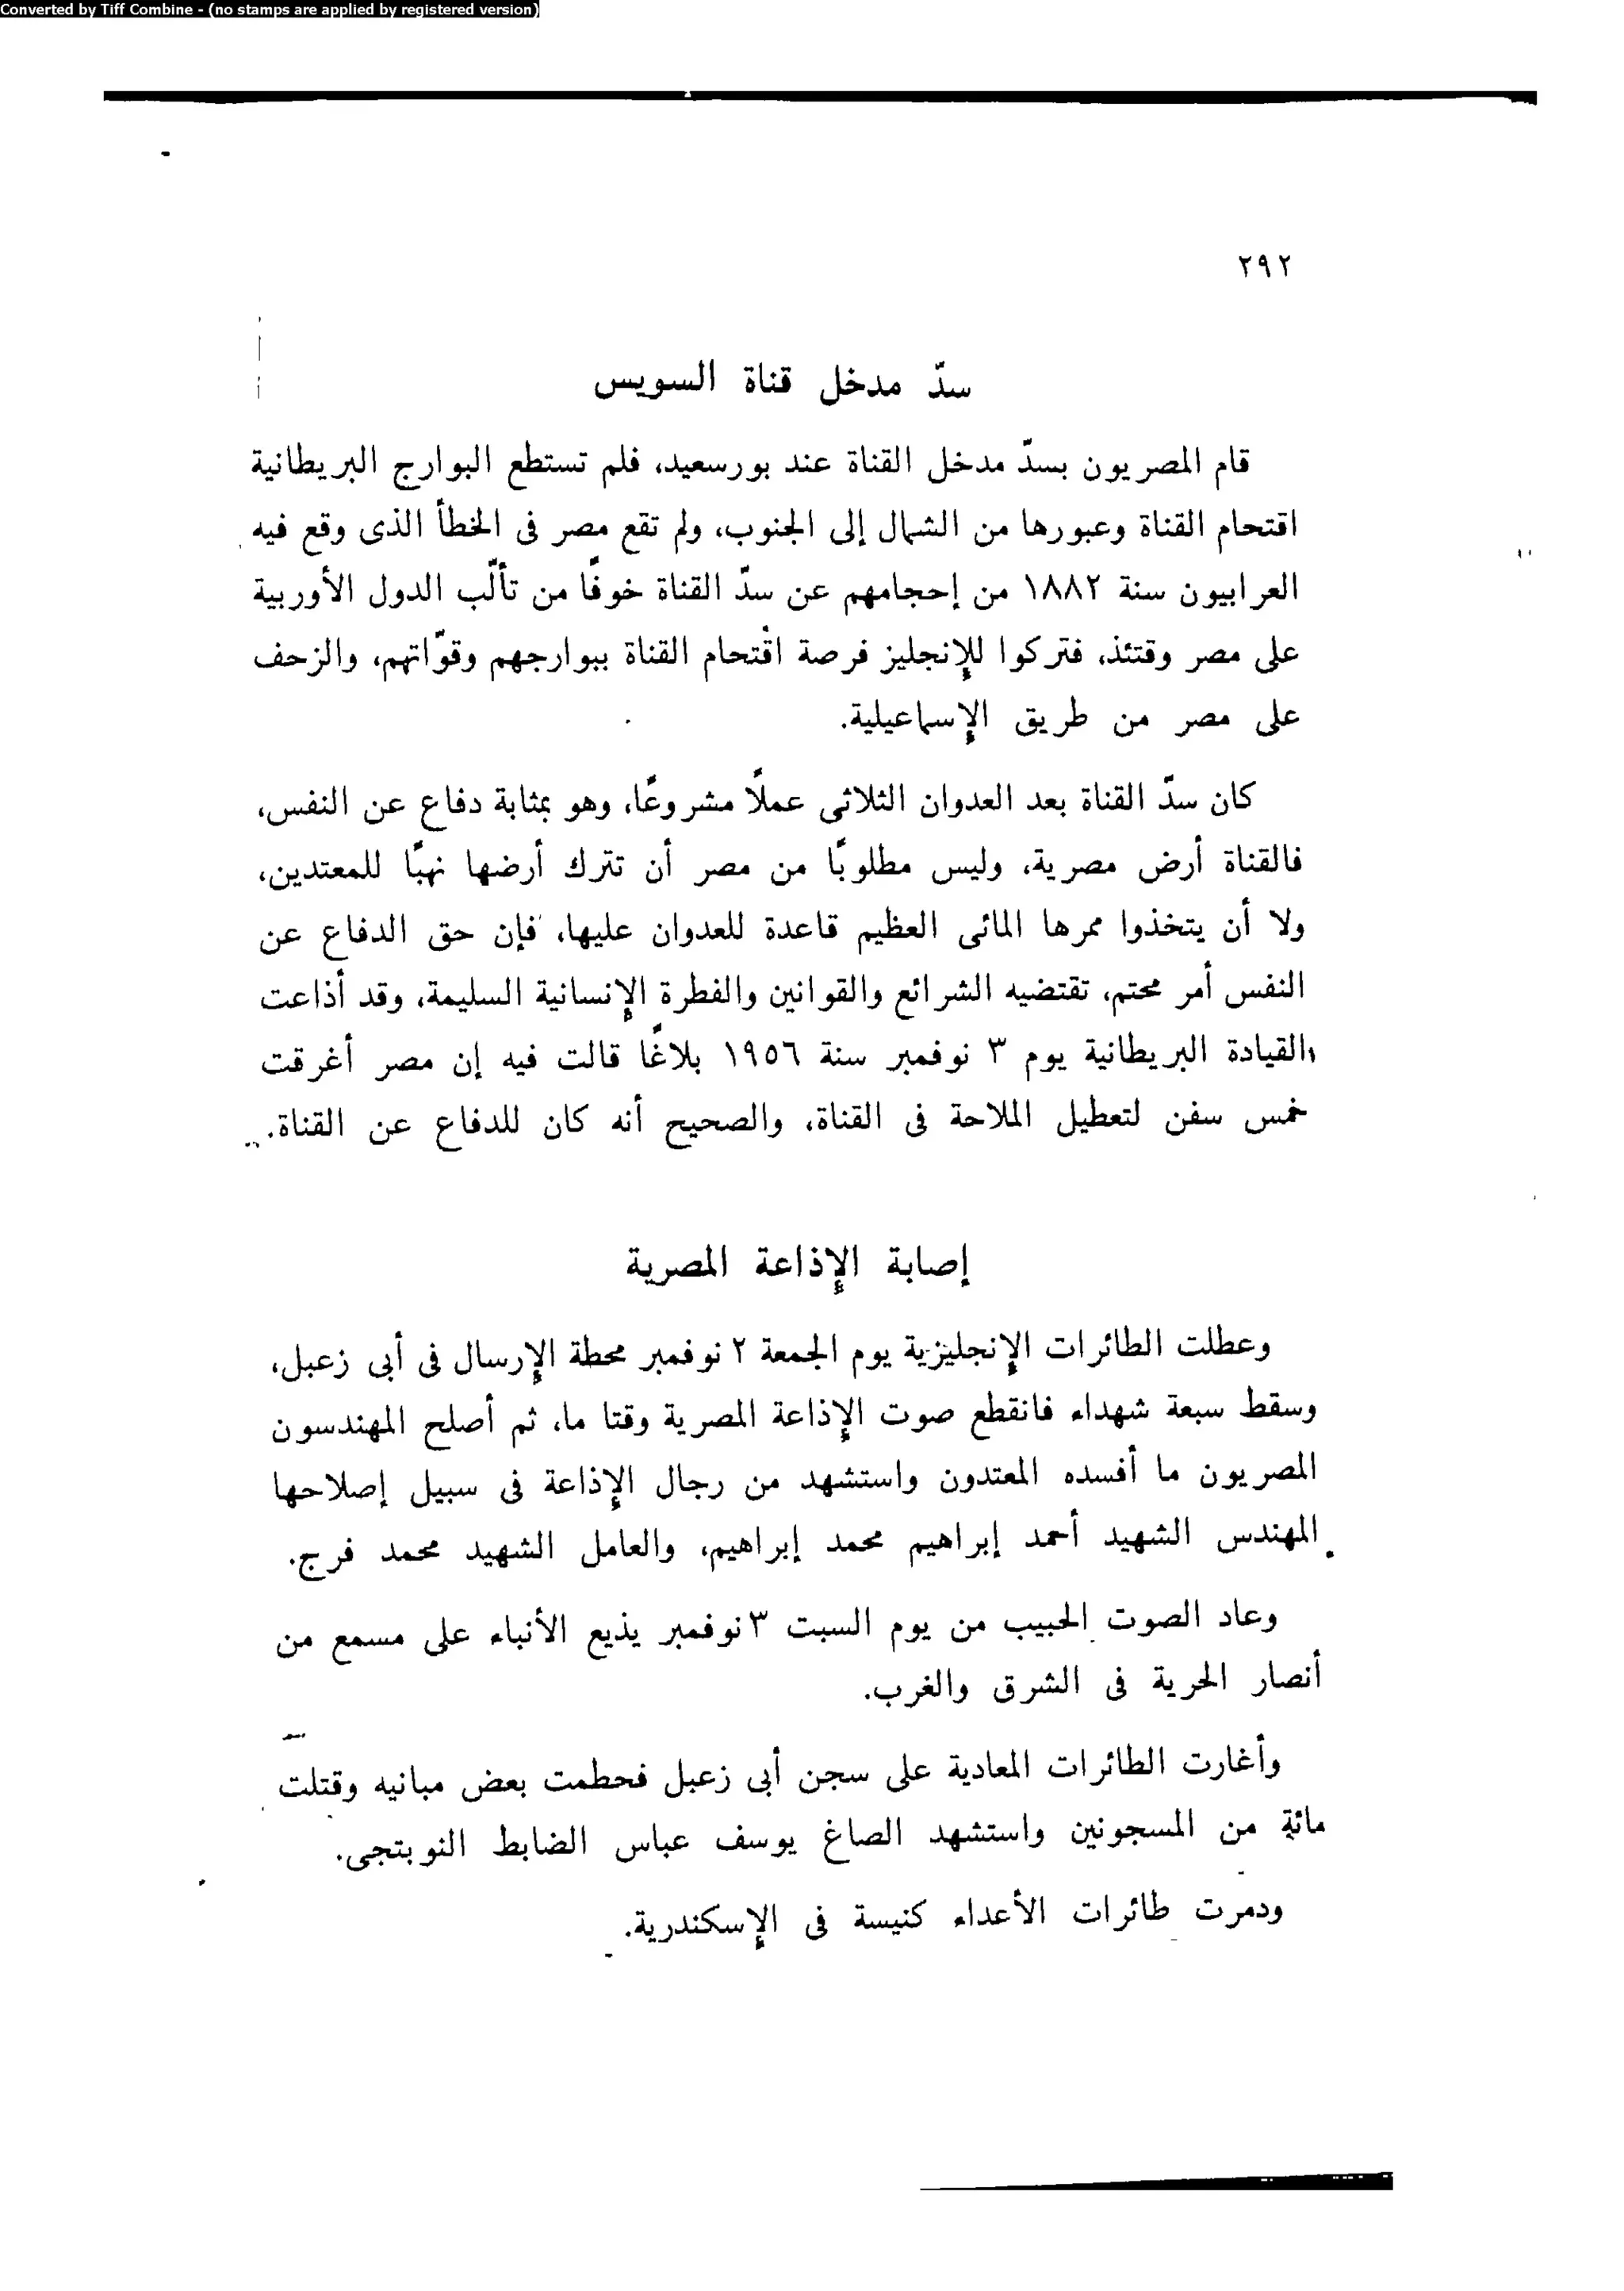 Converted by Tiff Combine - (no stamps are applied by registered version)
٢٩٢
سدّ مدخل قناة السويس
قام المصريون بسدّ مدخل القناة عند بورسعيد، فلم تستطع البوارج البريطانية
اقتحام القناة وعبورها من الشمال إلى الجنوب، ولم تقع مصر فى الخطأ الذى وقع فيه
العرابيون سنة ١٨٨٢ من إحجامهم عن سدّ القناة خوفًا من تألّب الدول الأوربية
على مصر وقتئذ، فتركوا للإنجليز فرصة اقتحام القناة ببوارجهم وقوّاتهم، والزحف
على مصر من طريق الإسماعيلية.
كان سدّ القناة بعد العدوان الثلاثى عملاً مشروعًا، وهو بمثابة دفاع عن النفس،
فالقناة أرض مصرية، وليس مطلوبًا من مصر أن تترك أرضها نهبًا للمعتدين،
ولا أن يتخذوا ممرها المائى العظيم قاعدة للعدوان عليها، فإن حق الدفاع عن
النفس أمر محتم، تقتضيه الشرائع والقوانين والفطرة الإنسانية السليمة، وقد أذاعت
القيادة البريطانية يوم ٣ نوفمبر سنة ١٩٥٦ بلاغًا قالت فيه إن مصر أغرقت
خمس سفن لتعطيل الملاحة فى القناة، والصحيح أنه كان للدفاع عن القناة.
إصابة الإذاعة المصرية
وعطلت الطائرات الإنجليزية يوم الجمعة ٢ نوفمبر محطة الإرسال فى أبى زعبل،
وسقط سبعة شهداء فانقطع صوت الإذاعة المصرية وقتا ما، ثم أصلح المهندسون
المصريون ما أفسده المعتدون واستشهد من رجال الإذاعة فى سبيل إصلاحها
المهندس الشهيد أحمد إبراهيم محمد إبراهيم، والعامل الشهيد محمد فرج.
وعاد الصوت الحبيب من يوم السبت ٣ نوفمبر يذيع الأنباء على مسمع من
أنصار الحرية فى الشرق والغرب.
وأغارت الطائرات المعادية على سجن أبى زعبل فحطمت بعض مبانيه وقتلت
مائة من المسجونين واستشهد الصاغ يوسف عباس الضابط النوبتجى.
ودمرت طائرات الأعداء كنيسة فى الإسكندرية.